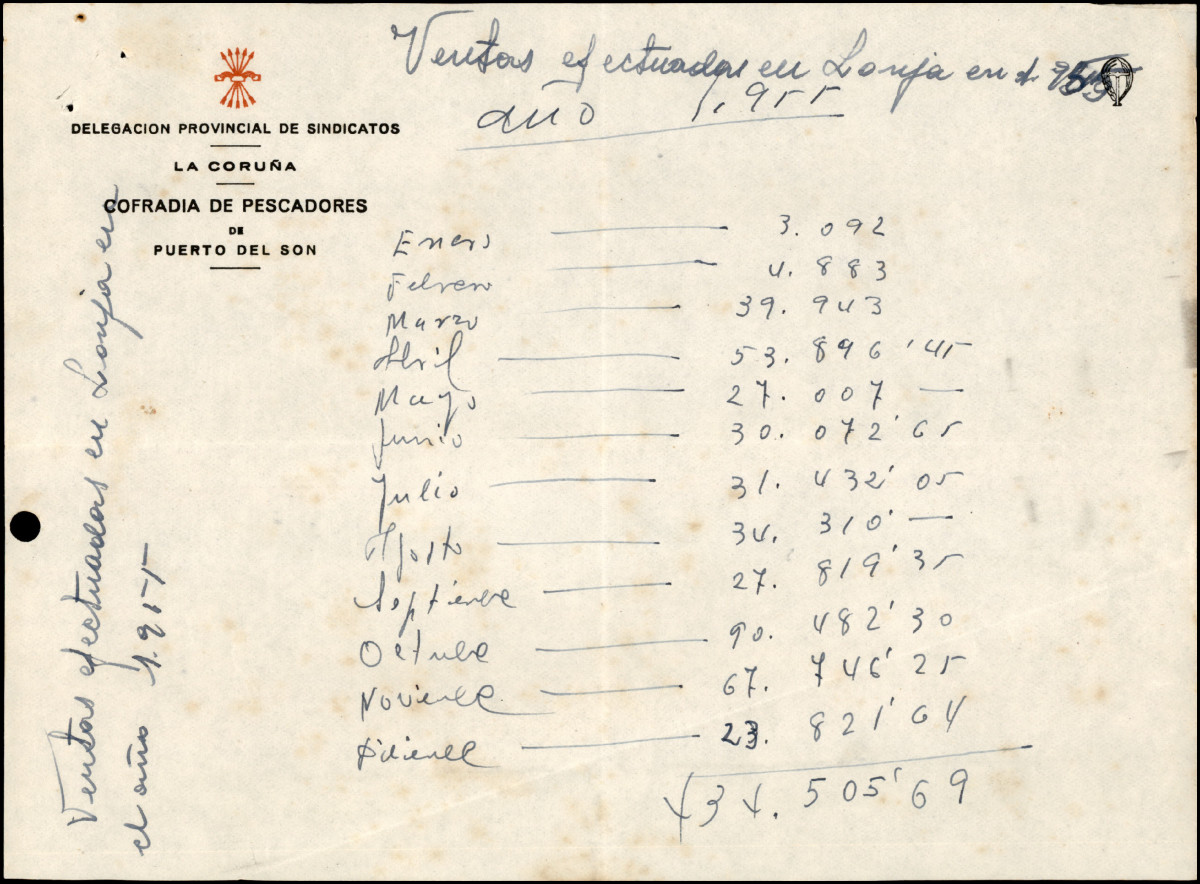 Ventas efectuadas en Lonja en 1.955
año 1.955
DELEGACION PROVINCIAL DE SINDICATOS
LA CORUÑA
COFRADIA DE PESCADORES
DE
PUERTO DEL SON
Enero — 3.092
Febrero — 4.883
Marzo — 39.943
Abril — 53.896'45
Mayo — 27.007 —
Junio — 30.072'65
Julio — 31.432'05
Agosto — 34.310' —
Septienbre — 27.819'35
Octubre — 90.482'30
Novienbre — 67.746'25
Dicienbre — 23.821'64
434.505'69
Ventas efectuadas en Lonja en
el año 1.955